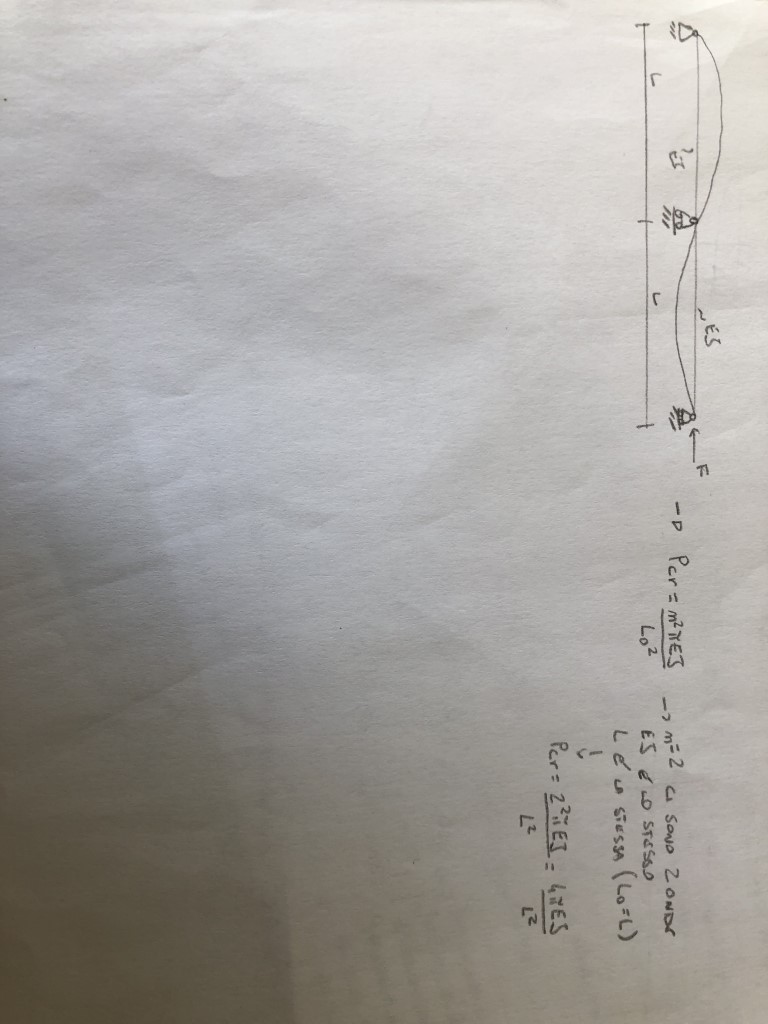 L
L
EJ
EJ
F
→ Pcr = m²πEJ / L₀² → m=2 ci sono 2 onde
EJ è lo stesso
L è la stessa (L₀=L)
↓
Pcr = 2²πEJ / L² = 4πEJ / L²